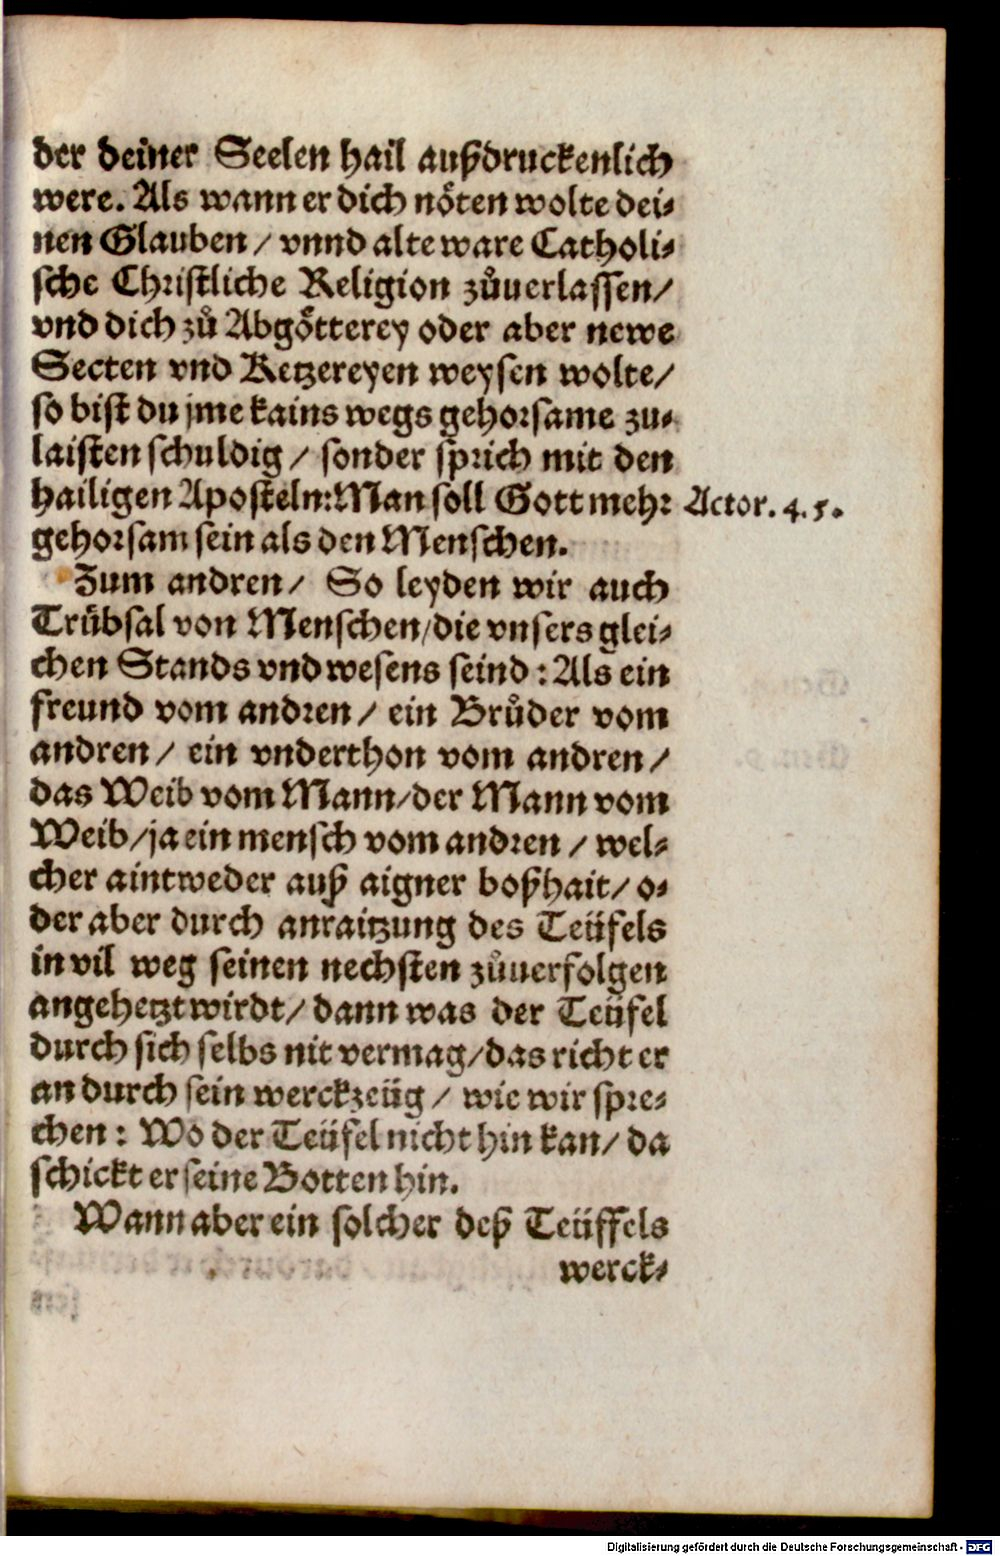 der deiner Seelen hail außdruckenlich
were. Als wann er dich nöten wolte dei⸗
nen Glauben / vnnd alte ware Catholi⸗
sche Christliche Religion zůuerlassen/
vnd dich zů Abgötterey oder aber newe
Secten vnd Ketzereyen weysen wolte/
so bist du jme kains wegs gehorsame zu⸗
laisten schuldig / sonder sprich mit den
hailigen Aposteln: Man soll Gott mehr Actor. 4. 5.
gehorsam sein als den Menschen.
Zum andren / So leyden wir auch
Trübsal von Menschen/die vnsers glei⸗
chen Stands vnd wesens seind : Als ein
freund vom andren / ein Brůder vom
andren / ein vnderthon vom andren /
das Weib vom Mann/der Mann vom
Weib/ja ein mensch vom andren / wel⸗
cher aintweder auß aigner boßhait/ o⸗
der aber durch anraitzung des Teüfels
in vil weg seinen nechsten zůuerfolgen
angehetzt wirdt/ dann was der Teüfel
durch sich selbs nit vermag/das richt er
an durch sein werckzeüg / wie wir spre⸗
chen : Wo der Teüfel nicht hin kan/ da
schickt er seine Botten hin.
Wann aber ein solcher deß Teüffels
werck⸗
Digitalisierung gefördert durch die Deutsche Forschungsgemeinschaft - DFG